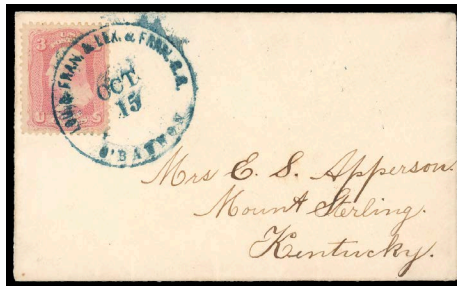 LOU. & FRAN. & LEX. & FRAN. R.R.
OCT.
15
O'BANNON
3 3
U S
Mrs E. S. Apperson.
Mount Sterling.
Kentucky.